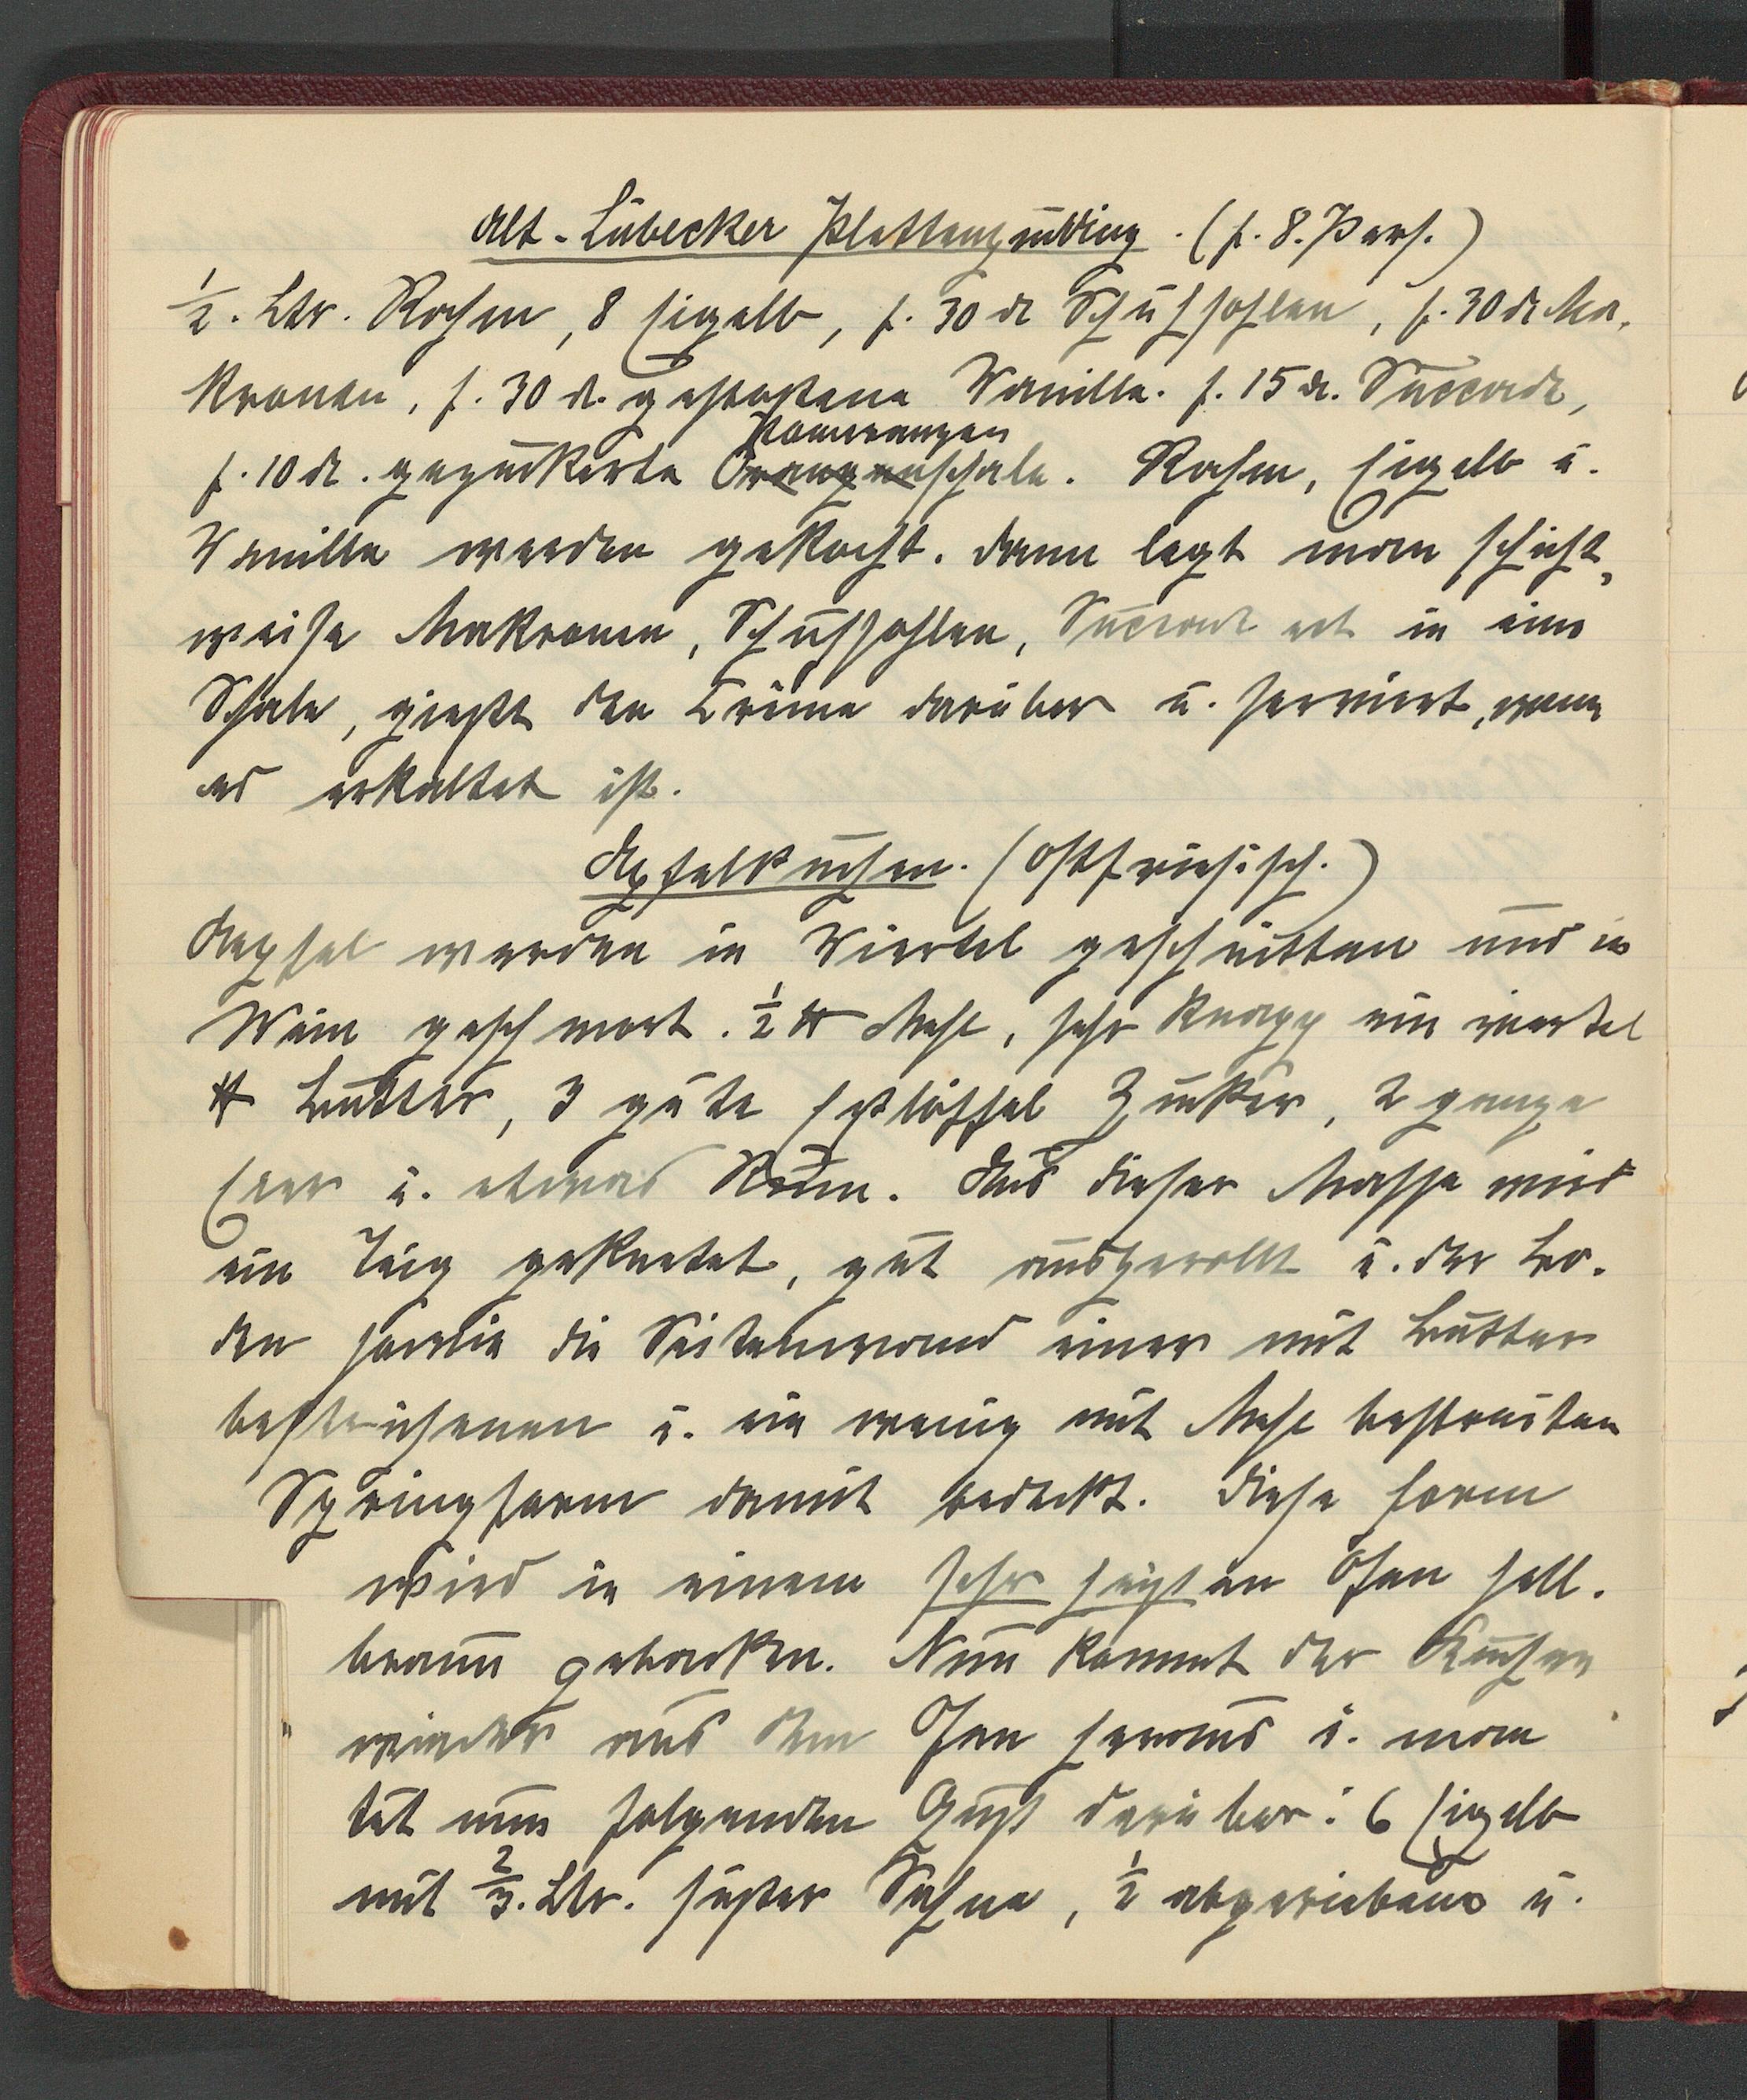 Alt-Lübecker Plettenpudding. (f. 8. Pers.)
1/2. Ltr. Rahm, 8 Eigelb, f. 30 ₰ Schuhsohlen, f. 30 ₰ Ma-
kronen, f. 30 ₰. gestoßene Vanille. f. 15 ₰. Succade,
Pomeranzen
f. 10 ₰. gezuckerte Orangenschale. Rahm, Eigelb u.
Vanille werden gekocht. Dann legt man schicht-
weise Makronen, Schuhsohlen, Succade ect in eine
Schale, gießt den Crême darüber u. serviert, wenn
es erkaltet ist.
Apfelkuchen. (Ostfriesisch.)
Aepfel werden in Viertel geschnitten und in
Wein geschmort. 1/2 ℔ Mehl, sehr knapp ein viertel
℔ Butter, 3 gute Eßlöffel Zucker, 2 ganze
Eier u. etwas Rum. Aus dieser Masse wird
ein Teig geknetet, gut ausgerollt u. der Bo-
den sowie die Seitenwand einer mit Butter
bestrichenen u. ein wenig mit Mehl bestreuten
Springform damit bedeckt. Diese Form
wird in einem sehr heißen Ofen hell-
braun gebacken. Nun kommt der Kuchen
wieder aus dem Ofen heraus u. man
tut nun folgenden Guß darüber: 6 Eigelb
mit 2/3. Ltr. süßer Sahne, 1/2 abgeriebene u.